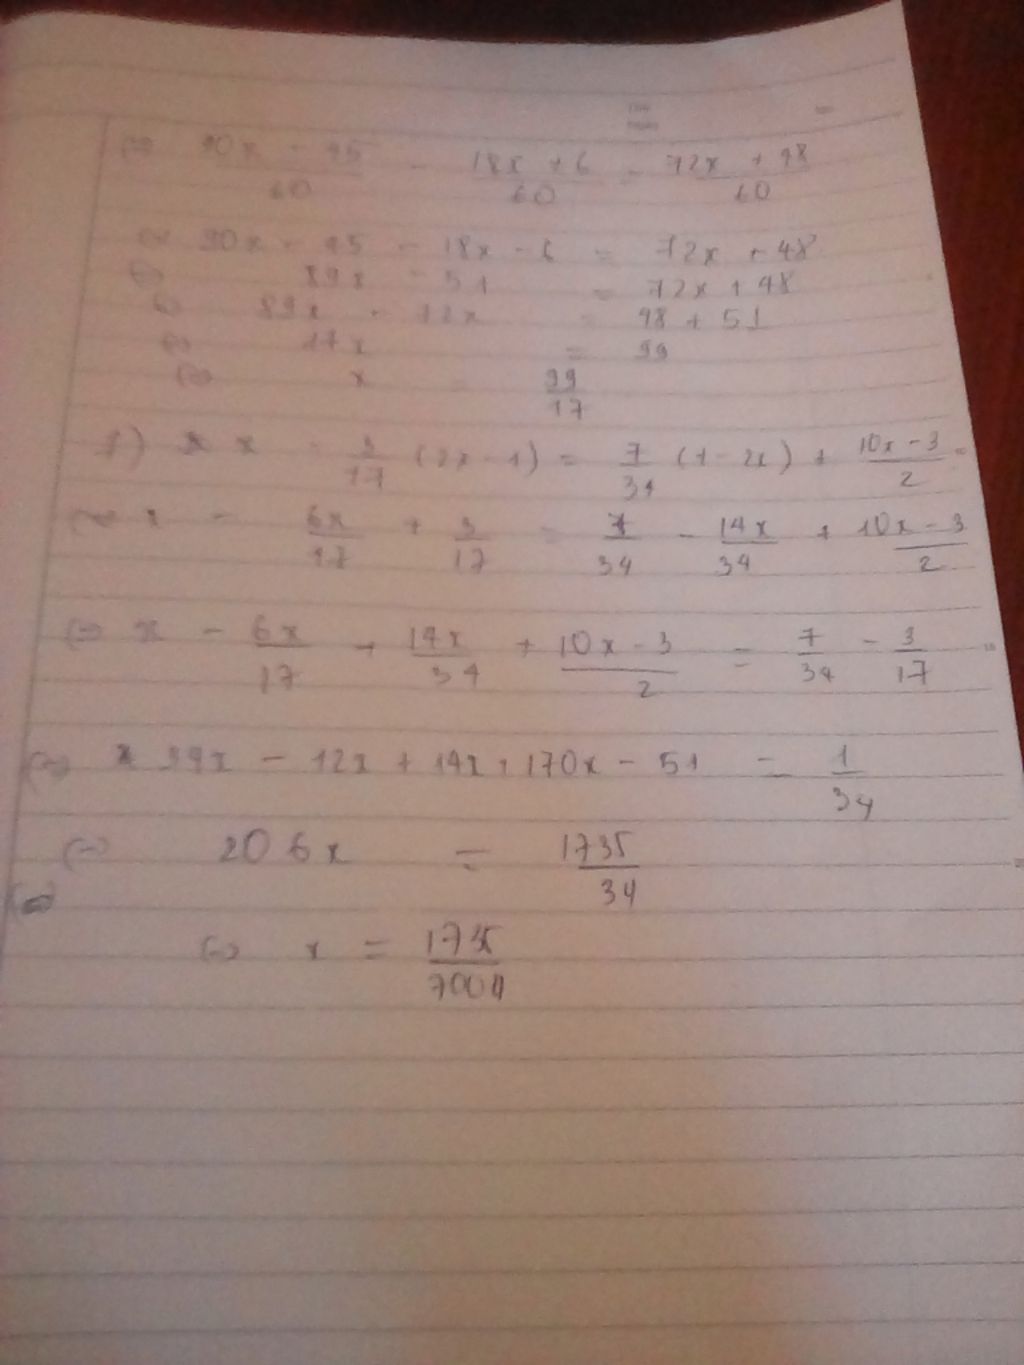 ⇔ 90x - 45 / 60 - 18x + 6 / 60 = 72x + 48 / 60
⇔ 90x - 45 - 18x - 6 = 72x + 48
⇔ 89x - 51 = 72x + 48
⇔ 89x - 72x = 48 + 51
⇔ 17x = 99
⇔ x = 99/17
x - 3/17 (2x - 1) = 7/34 (1 - 2x) + 10x - 3 / 2 =
⇔ x - 6x/17 + 3/17 = 7/34 - 14x/34 + 10x - 3 / 2
⇔ x - 6x/17 + 14x/34 + 10x - 3 / 2 = 7/34 - 3/17
⇔ 34x - 12x + 14x + 170x - 51 = 1/34
⇔ 206x = 1735/34
⇔
⇔ x = 1735/7004